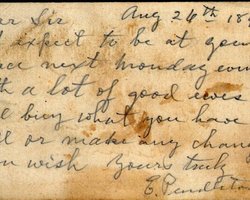 ear Sir Aug 26th 18
expect to be at you
ace next Monday
th a lot of good ewes
ll buy what you have
ll or make any chan
ou wish Yours truly
E. Pendleton